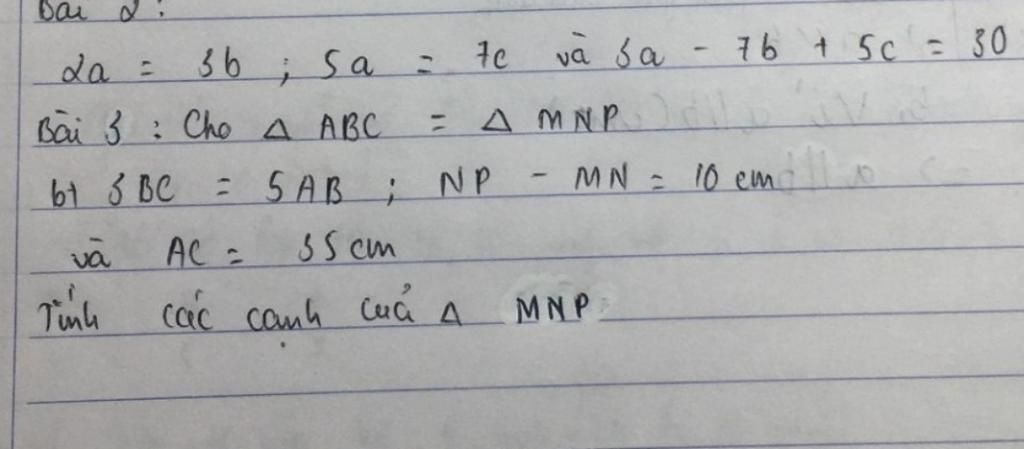 Bài 2:
2a = 3b ; 5a = 7c và 3a - 7b + 5c = 30
Bài 3 : Cho Δ ABC = Δ MNP
b) 3BC = 5AB ; NP - MN = 10 cm
và AC = 35 cm
Tính các cạnh cuả Δ MNP